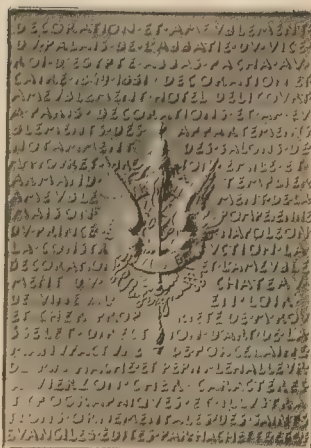 DECORATION·ET·AMEVBLEMENT
DV·PALAIS·DE·L'ABBATIE·DV·VICE
ROI·D'EGYPTE·ABBAS·PACHA·AV
CAIRE·1849·1851·DECORATION·ET
AMEVBLEMENT·HOTEL
A·PARIS·DECORATIONS·ET·AMEV
BLEMENTS·DES·APPARTEMENTS
NOTAMMENT DES·SALONS·DE
ET·
ARMAND TEMPLIER
AMEVBLE MENT·DE·LA
MAISON POMPEIENNE
DV·PRINCE NAPOLEON
LA·CONSTR VCTION·LA
DECORATION ET·L'AMEVBLE
MENT DV CHATEAV
DE EN·LOIR
ET·CHER·PROP RIETE·DE·M·
DIRECT ION·D'ART·DE·LA
MANVFACTVRE DE·PORCELAINE
DE HACHE·ET·PEPIN·LEHALLEVR
A VIERZON·CHER·CARACTERES
TYPOGRAPHIQVES·ET·ILLVSTRA
TIONS·ORNEMENTALES·DES·SAINTS
EVANGILES·EDITES·PAR·HACHETTE·ET·CIE